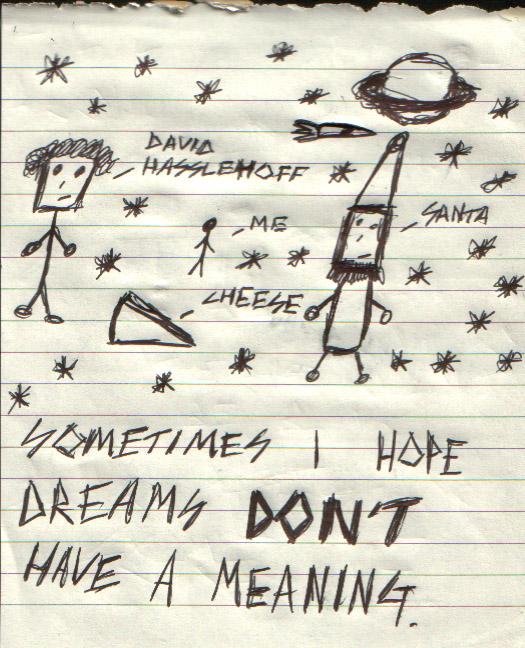 DAVID
HASSLEHOFF
ME
SANTA
CHEESE
SOMETIMES I HOPE
DREAMS DON'T
HAVE A MEANING.